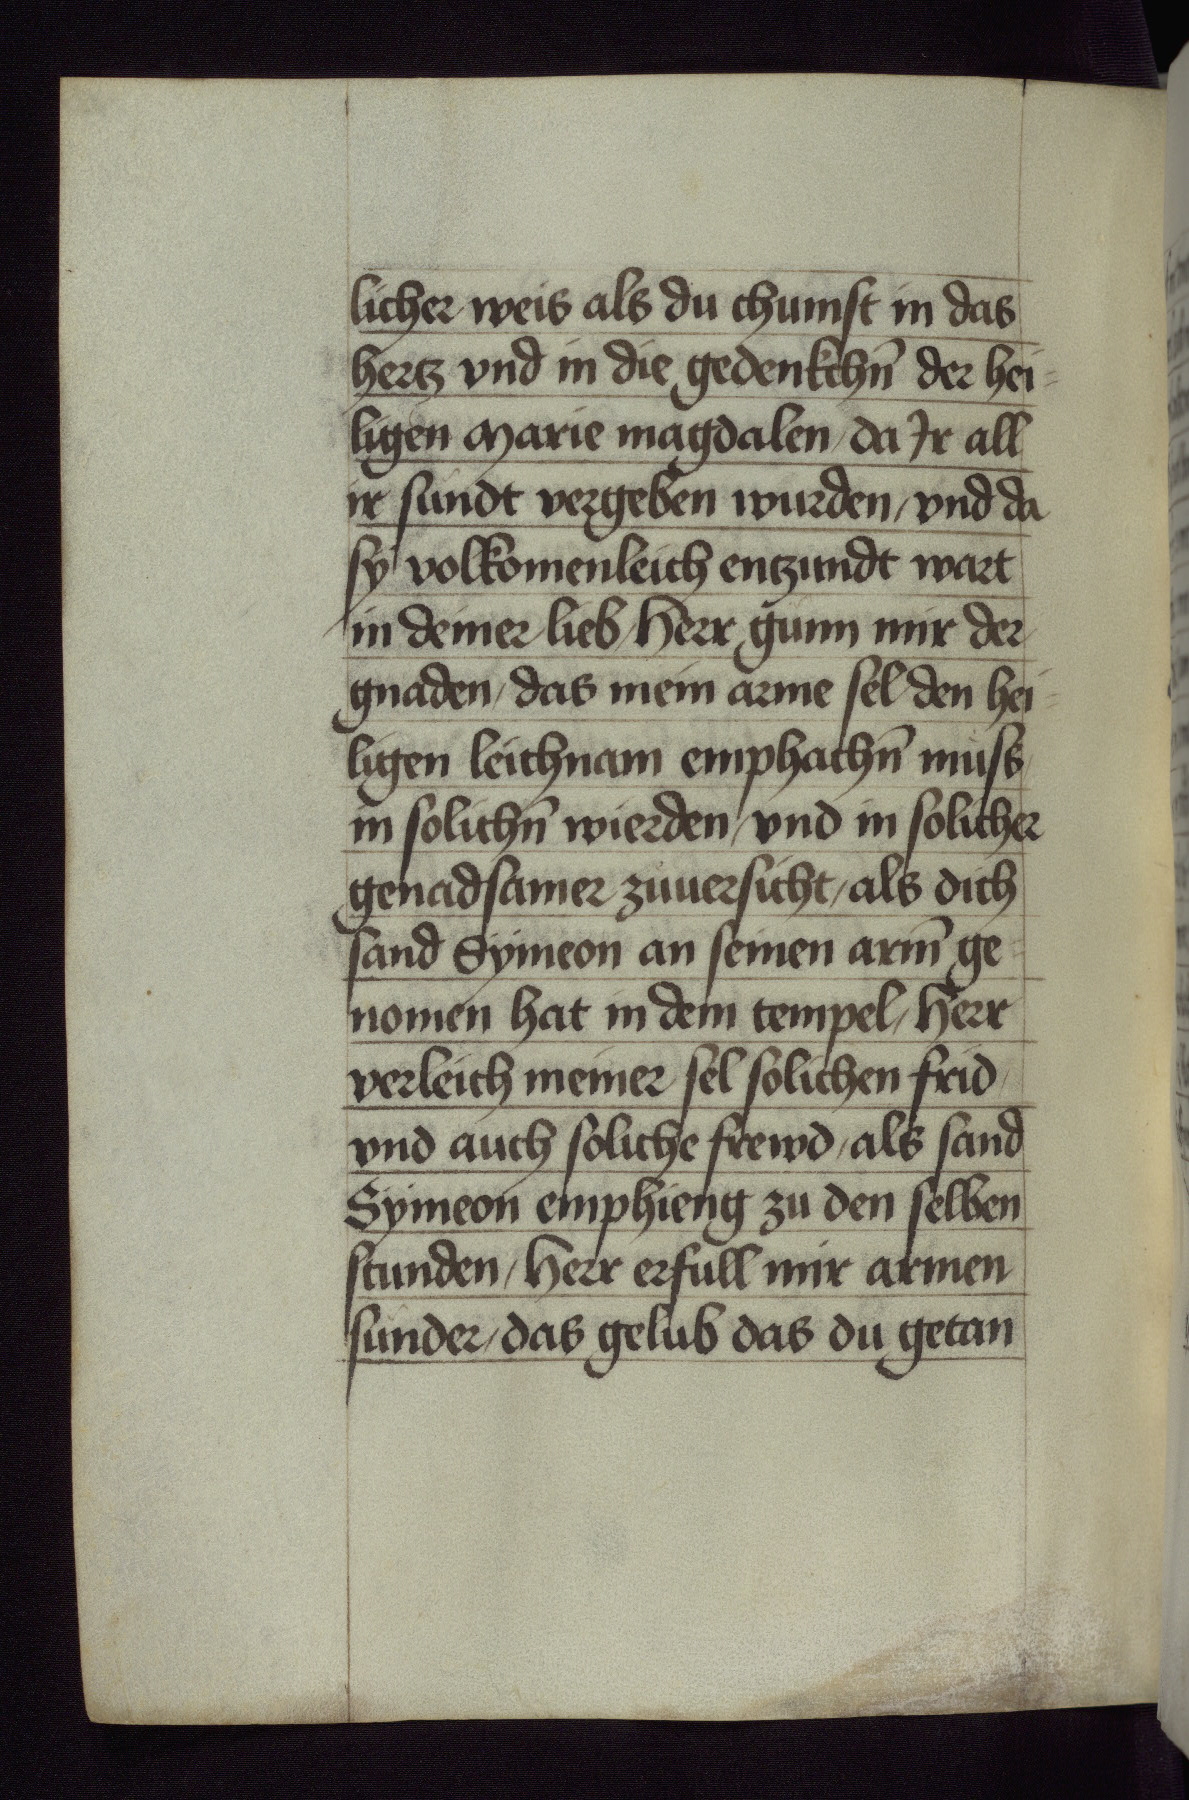 licher weis als du chumst in das
hertz vnd in die gedenkchn̄ der hei⸗
ligen Marie magdalen / da Ir all
ir sundt vergeben wurden / vnd da
sy volkomenleich entzundt wart
in deiner lieb / Herr gunn mir der
gnaden / das mein arme sel den hei⸗
ligen leichnam emphachn̄ muss
in solichn̄ wierden / vnd in solicher
genadsamer zuuersicht / als dich
sand Symeon an seinen arm̄ ge⸗
nomen hat in dem tempel / Herr
verleich meiner sel solichen frid /
vnd auch soliche frewd / als sand
Symeon emphieng zu den selben
stunden / Herr erfull mir armen
sunder / das gelub das du getan